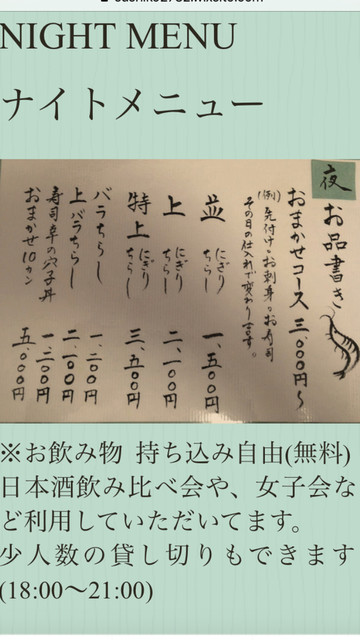 NIGHT MENU
ナイトメニュー
夜
お品書き
おまかせコース 三、〇〇〇円〜
(例) 先付け・お刺身・お寿司
その日の仕入れで変わります。
並 にぎり ちらし 一、五〇〇円
上 にぎり ちらし 二、一〇〇円
特上 にぎり ちらし 三、五〇〇円
バラちらし 一、二〇〇円
上バラちらし 二、一〇〇円
寿司幸の穴子丼 一、三〇〇円
おまかせ10カン 五、〇〇〇円
※お飲み物 持ち込み自由(無料)
日本酒飲み比べ会や、女子会な
ど利用していただいてます。
少人数の貸し切りもできます
(18:00〜21:00)